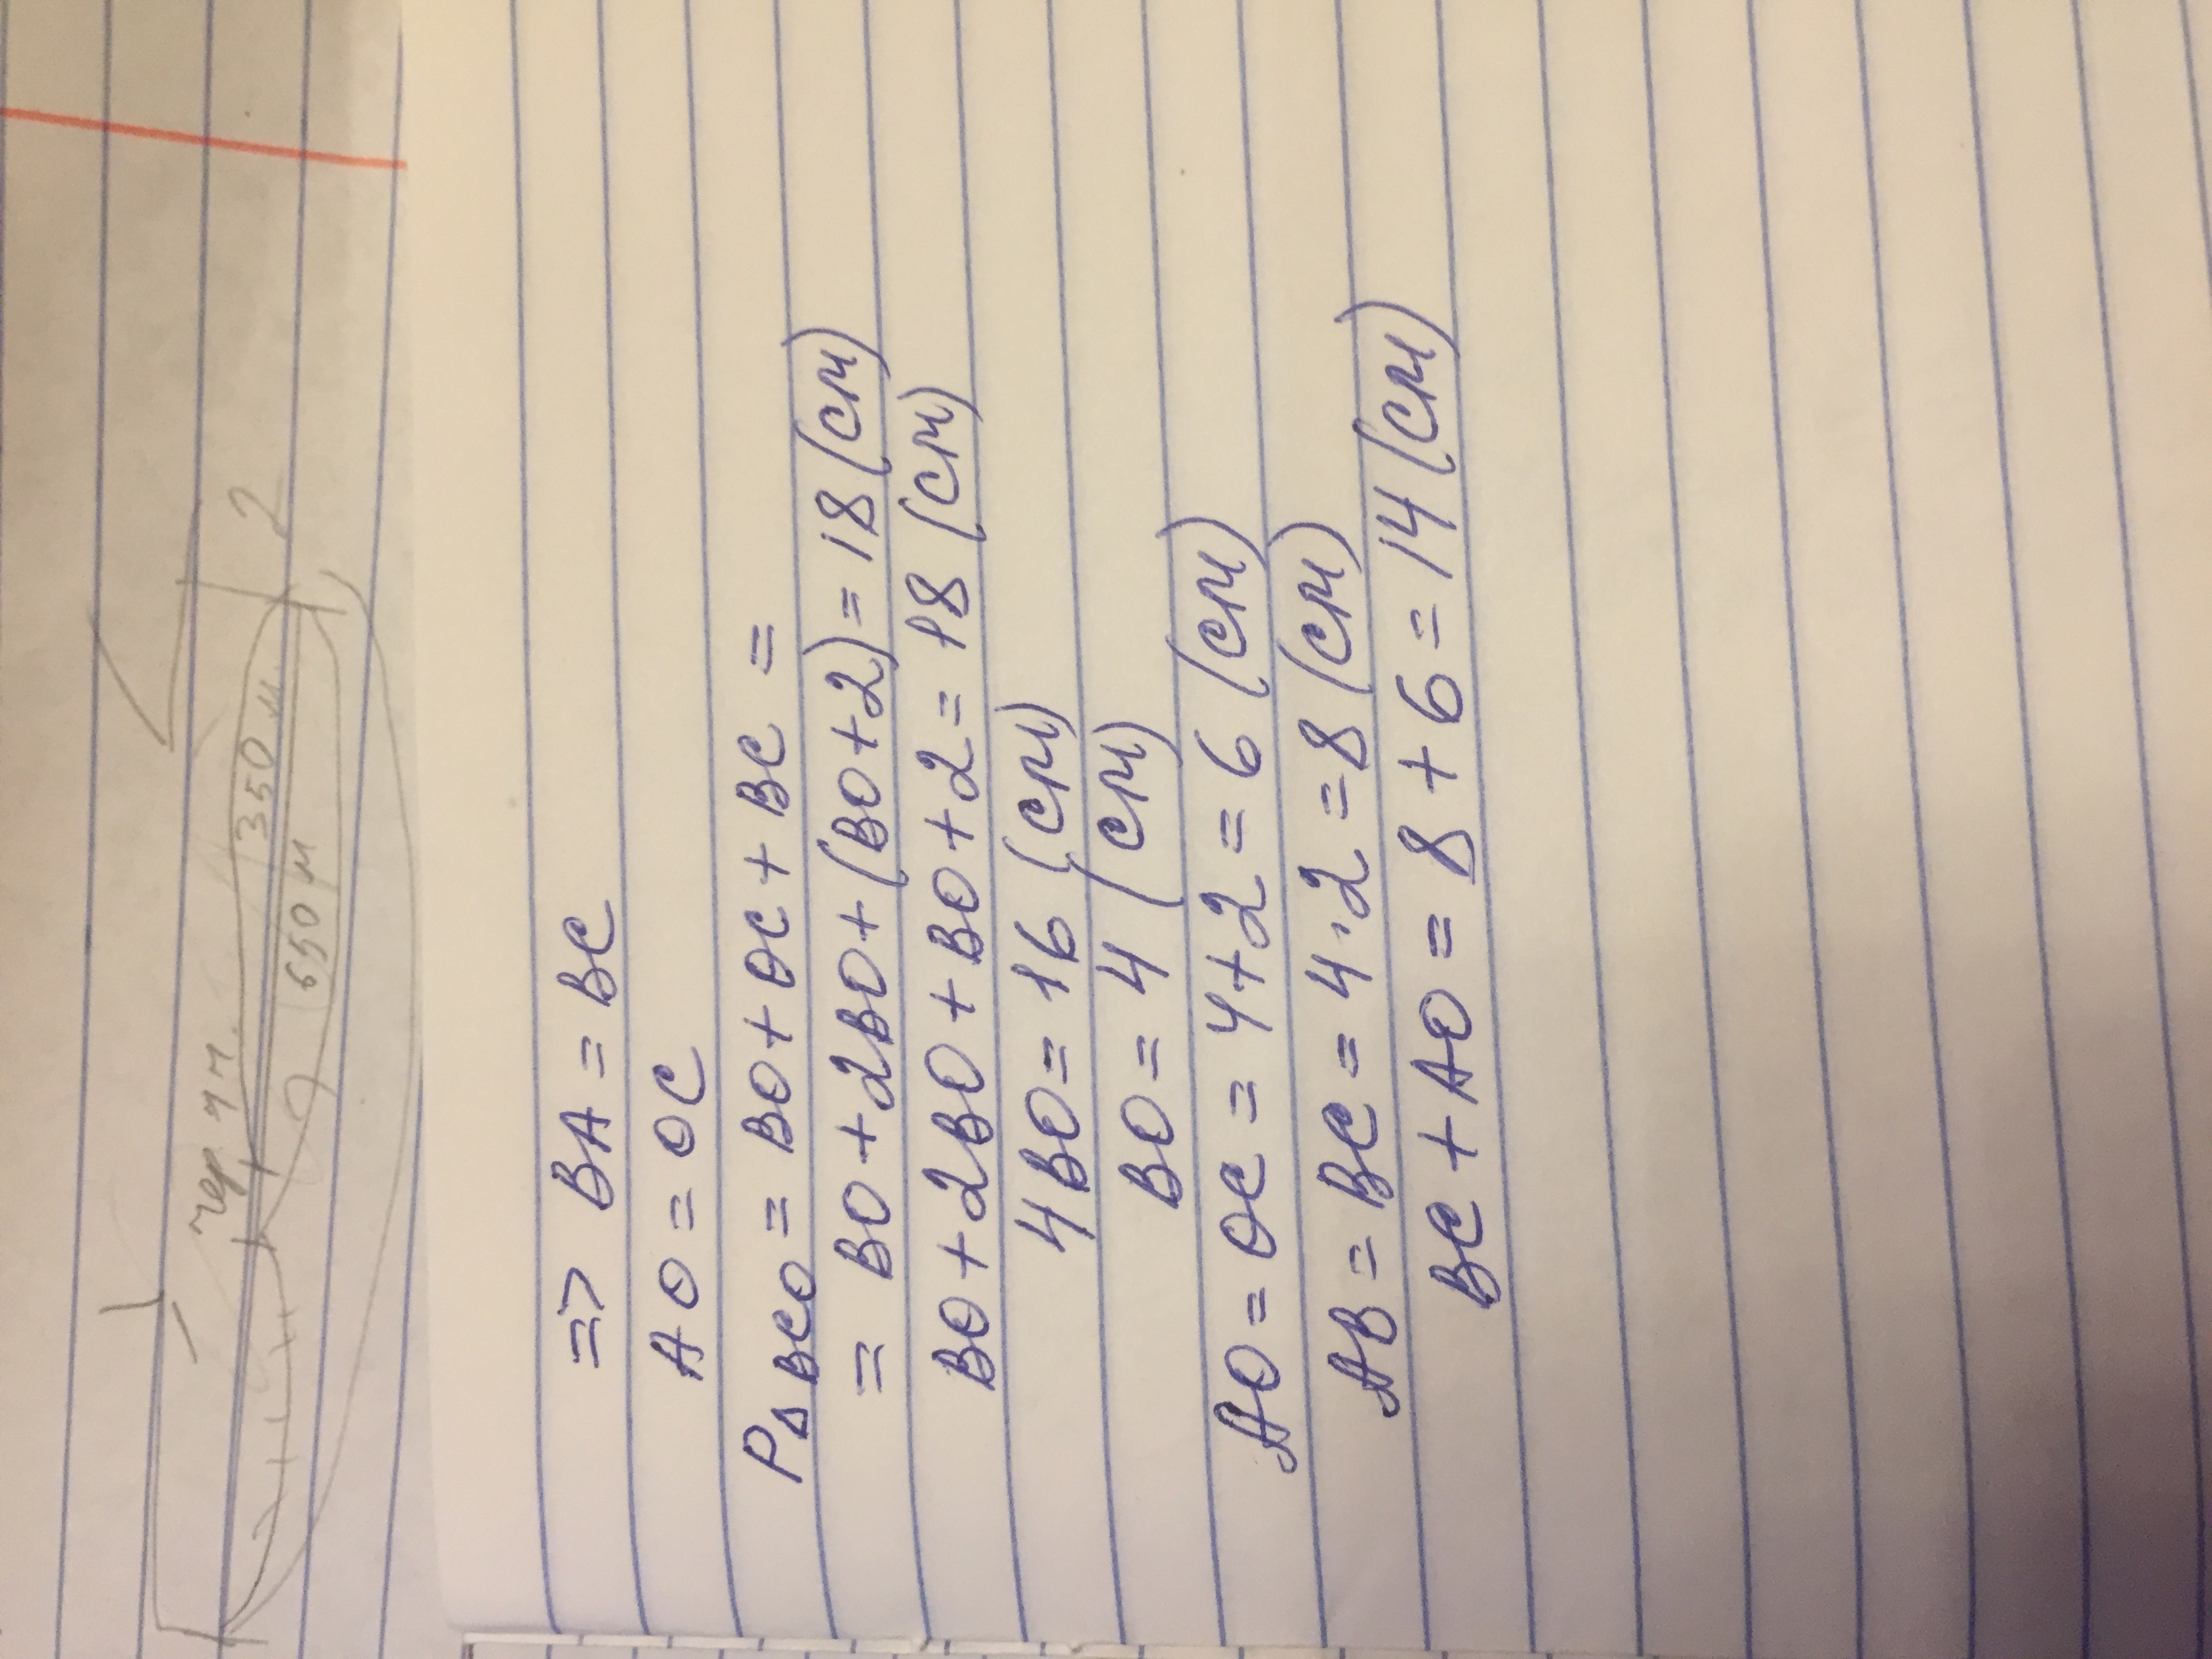 2
350 м
650 м
=> BA = BC
AO = OC
P△BCO = BO + OC + BC =
= BO + 2BO + (BO + 2) = 18 (см)
BO + 2BO + BO + 2 = 18 (см)
4BO = 16 (см)
BO = 4 (см)
AO = OC = 4 + 2 = 6 (см)
AB = BC = 4 · 2 = 8 (см)
BC + AO = 8 + 6 = 14 (см)